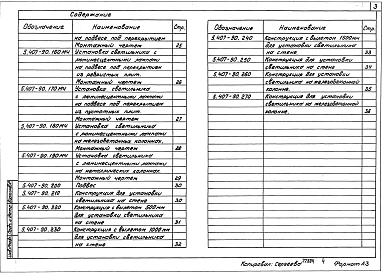 3
Содержание
Обозначение Наименование Стр.
на подвесе под перекрытием
Монтажный чертеж 25
5.407-90.160МЧ Установка светильника с
люминесцентными лампами
на подвесе под перекрытием
из ребристых плит.
Монтажный чертеж 26
5.407-90.170МЧ Установка светильника
с люминесцентными лампами
на подвесе под перекрытием
из пустотных плит.
Монтажный чертеж 27
5.407-90.180МЧ Установка светильника
с люминесцентными лампами
на железобетонных колоннах.
Монтажный чертеж 28
5.407-90.190МЧ Установка светильника
с люминесцентными лампами
на металлических колоннах.
Монтажный чертеж 29
5.407-90.200 Подвес 30
5.407-90.210 Конструкция для установки
светильника на стене 30
5.407-90.220 Конструкция с вылетом 500мм
для установки светильника
на стене 31
5.407-90.230 Конструкция с вылетом 1000мм
для установки светильника
на стене 32
Обозначение Наименование Стр.
5.407-90.240 Конструкция с вылетом 1500мм
для установки светильника
на стене 33
5.407-90.250 Конструкция для установки
светильника на стене 34
5.407-90.260 Конструкция для установки
светильника на железобетонной
колонне. 35
5.407-90.270 Конструкция для установки
светильника на железобетонной
колонне. 36
Копировал: Сергеева 4 Формат А3